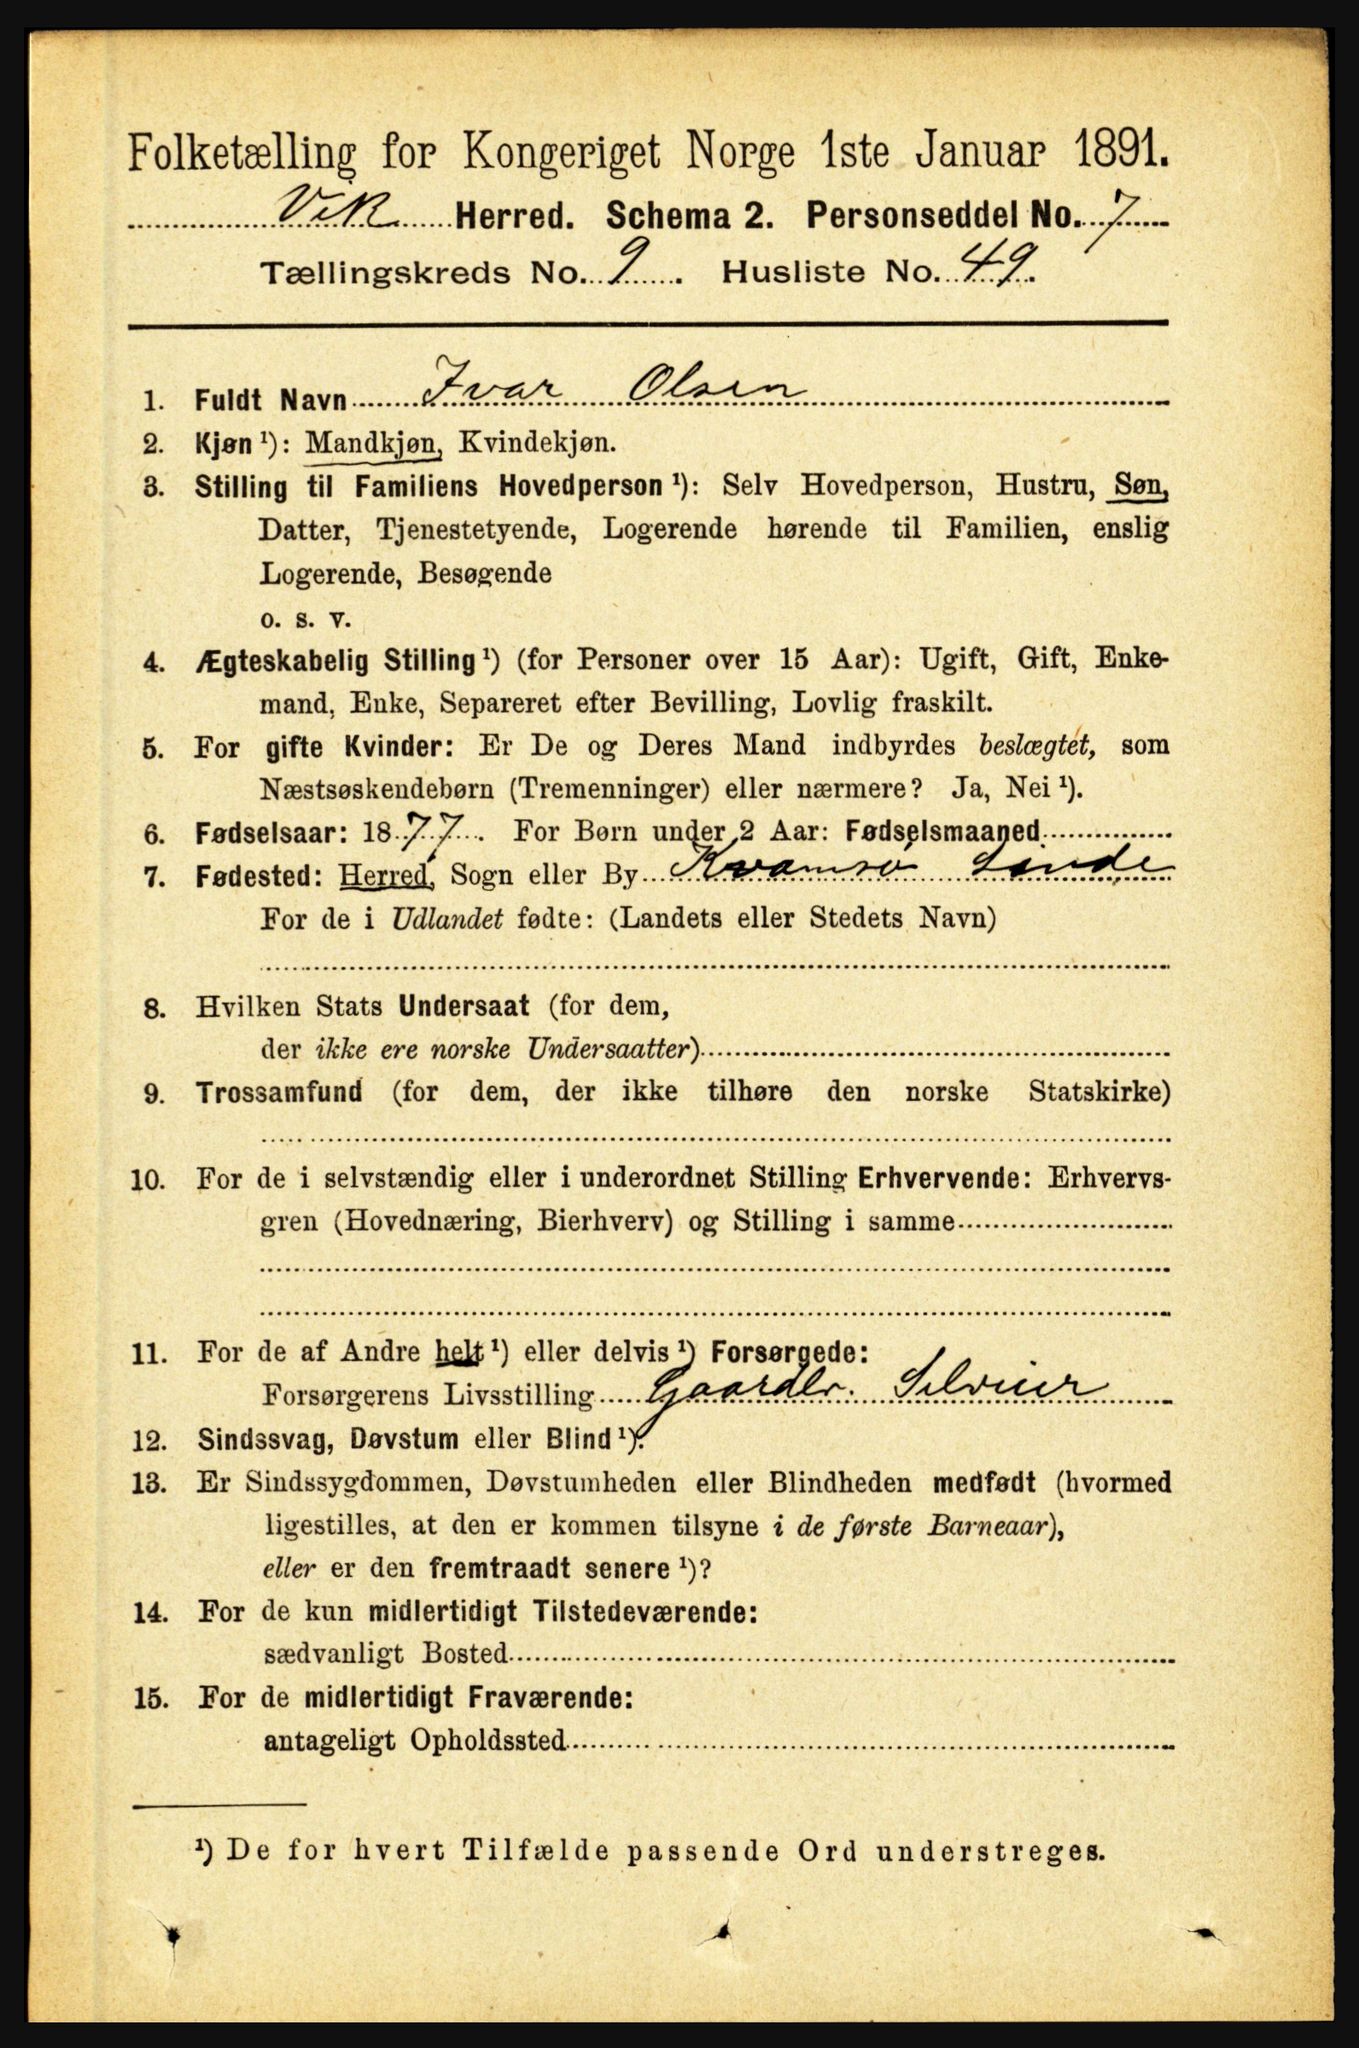 Folketælling for Kongeriget Norge 1ste Januar 1891.
Vik Herred. Schema 2. Personseddel No. 7
Tællingskreds No. 9. Husliste No. 49.
1. Fuldt Navn Ivar Olsen
2. Kjøn ¹): Mandkjøn, Kvindekjøn.
3. Stilling til Familiens Hovedperson ¹): Selv Hovedperson, Hustru, Søn,
Datter, Tjenestetyende, Logerende hørende til Familien, enslig
Logerende, Besøgende
o. s. v.
4. Ægteskabelig Stilling ¹) (for Personer over 15 Aar): Ugift, Gift, Enke-
mand, Enke, Separeret efter Bevilling, Lovlig fraskilt.
5. For gifte Kvinder: Er De og Deres Mand indbyrdes beslægtet, som
Næstsøskendebørn (Tremenninger) eller nærmere? Ja, Nei ¹).
6. Fødselsaar: 1877. For Børn under 2 Aar: Fødselsmaaned
7. Fødested: Herred, Sogn eller By Kvamsø
For de i Udlandet fødte: (Landets eller Stedets Navn)
8. Hvilken Stats Undersaat (for dem,
der ikke ere norske Undersaatter)
9. Trossamfund (for dem, der ikke tilhøre den norske Statskirke)
10. For de i selvstændig eller i underordnet Stilling Erhvervende: Erhvervs-
gren (Hovednæring, Bierhverv) og Stilling i samme
11. For de af Andre helt ¹) eller delvis ¹) Forsørgede:
Forsørgerens Livsstilling Gaardbr. Selveier
12. Sindssvag, Døvstum eller Blind ¹).
13. Er Sindssygdommen, Døvstumheden eller Blindheden medfødt (hvormed
ligestilles, at den er kommen tilsyne i de første Barneaar),
eller er den fremtraadt senere ¹)?
14. For de kun midlertidigt Tilstedeværende:
sædvanligt Bosted
15. For de midlertidigt Fraværende:
antageligt Opholdssted
¹) De for hvert Tilfælde passende Ord understreges.